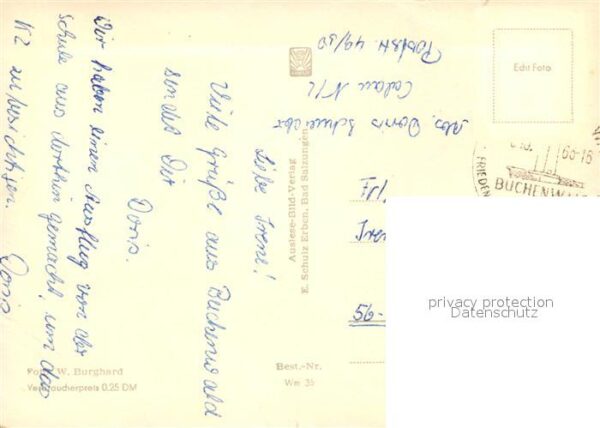 Liebe Irene!
Viele Grüße aus Buchenwald
sendet Dir
Doris.
Wir haben einen Ausflug von der
Schule aus dorthin gemacht, um das
KZ zu besichtigen.
Doris
Abs. Doris
Calau N/L
Postst. 49/50
Echt Foto
66-16
BUCHENWA
FRIEDEN
Auslese-Bild-Verlag
E. Schulz Erben, Bad Salzungen
56-
privacy protection
Datenschutz
Foto W. Burghard
Verbraucherpreis 0.25 DM
Best.-Nr.
Wm 35